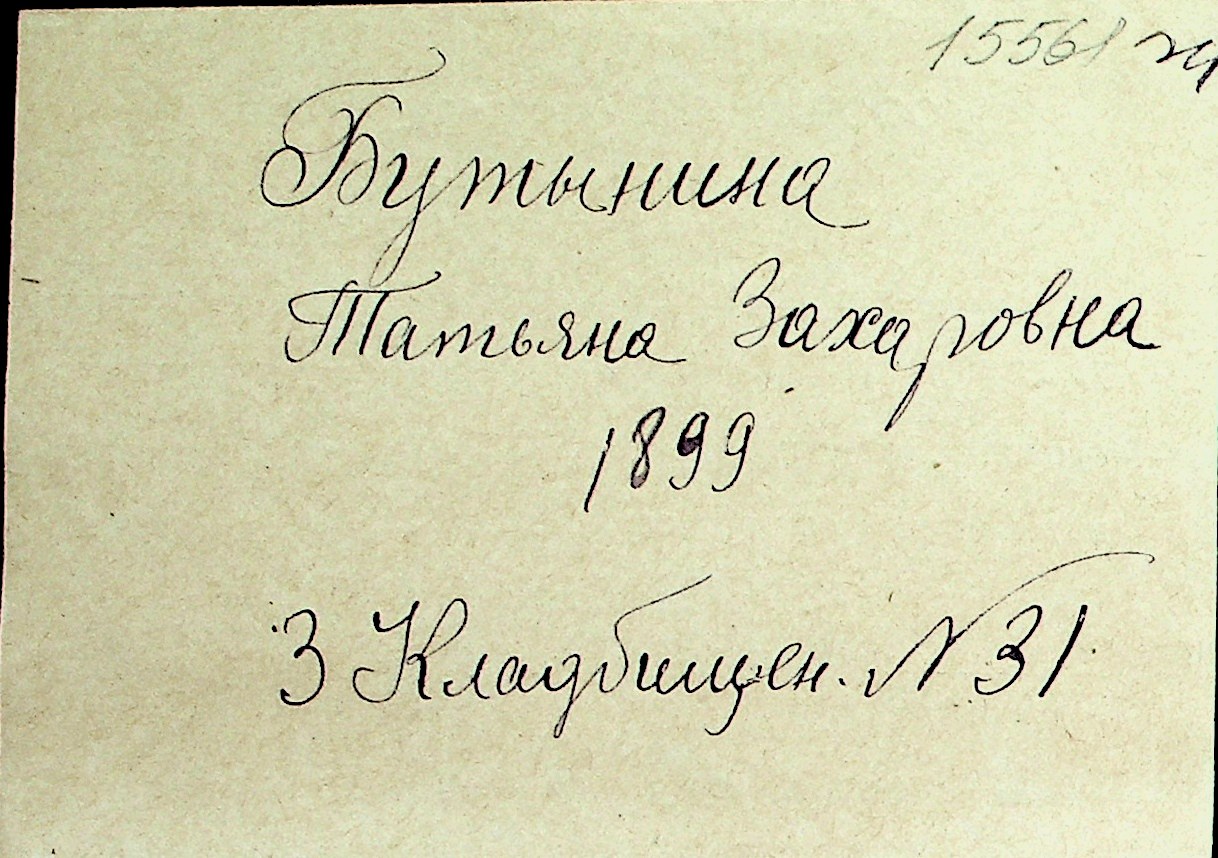 15561
Бутынина
Татьяна Захаровна
1899
3 Кладбищен. N 31